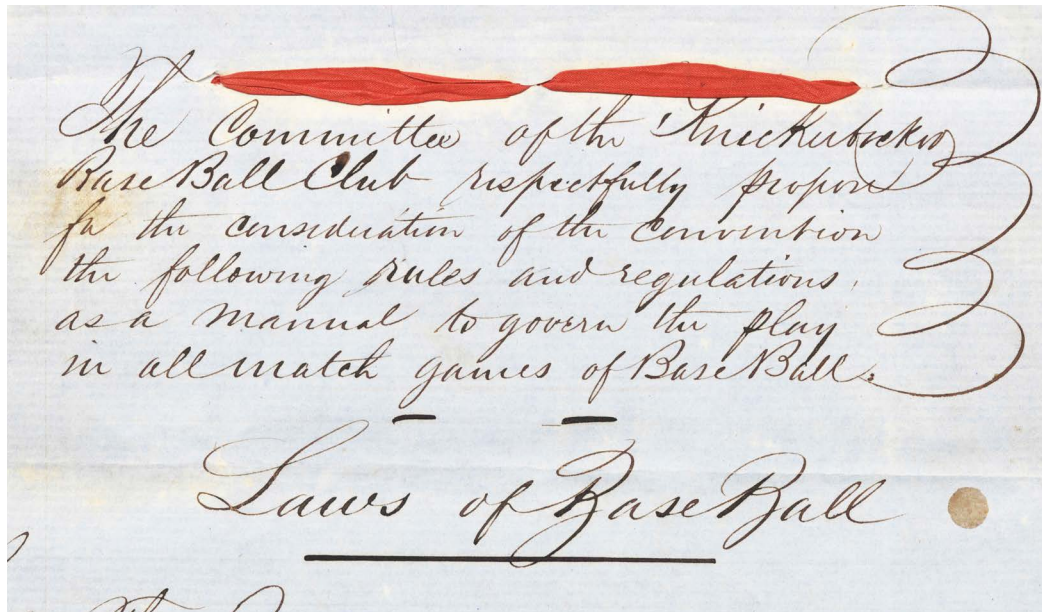 The Committee of the Knickerbocker
Base Ball Club respectfully propose
for the consideration of the Convention
the following rules and regulations,
as a manual to govern the play
in all match games of Base Ball.
Laws of Base Ball